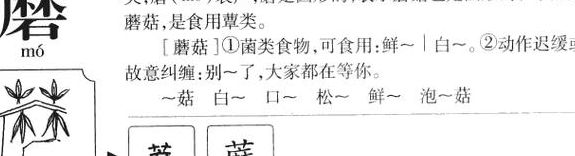 蘑
mó
蘑菇,是食用蕈类。
[蘑菇]①菌类食物,可食用:鲜~|白~。②动作迟缓或
故意纠缠:别~了,大家都在等你。
~菇 白~ 口~ 松~ 鲜~ 泡~菇